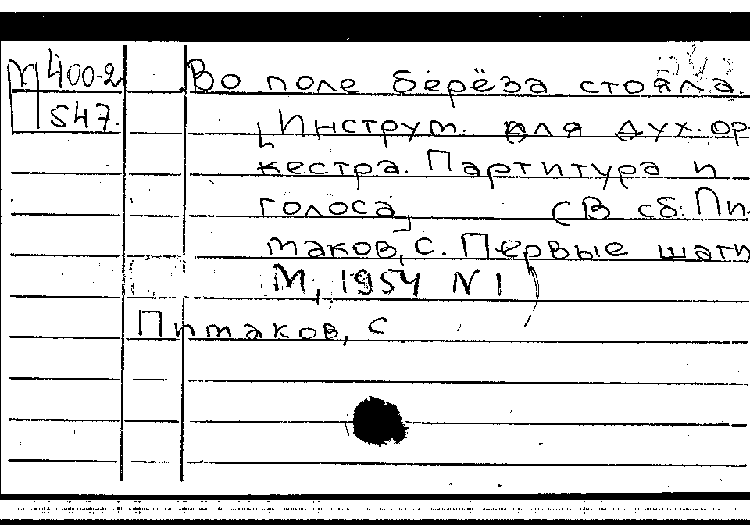 М 400-2 Во поле берёза стояла.
П 547. [Инструм. для дух. ор-
кестра. Партитура и
голоса] (В сб: Пи-
таков, С. Первые шаги
М, 1954 N 1)
Питаков, С